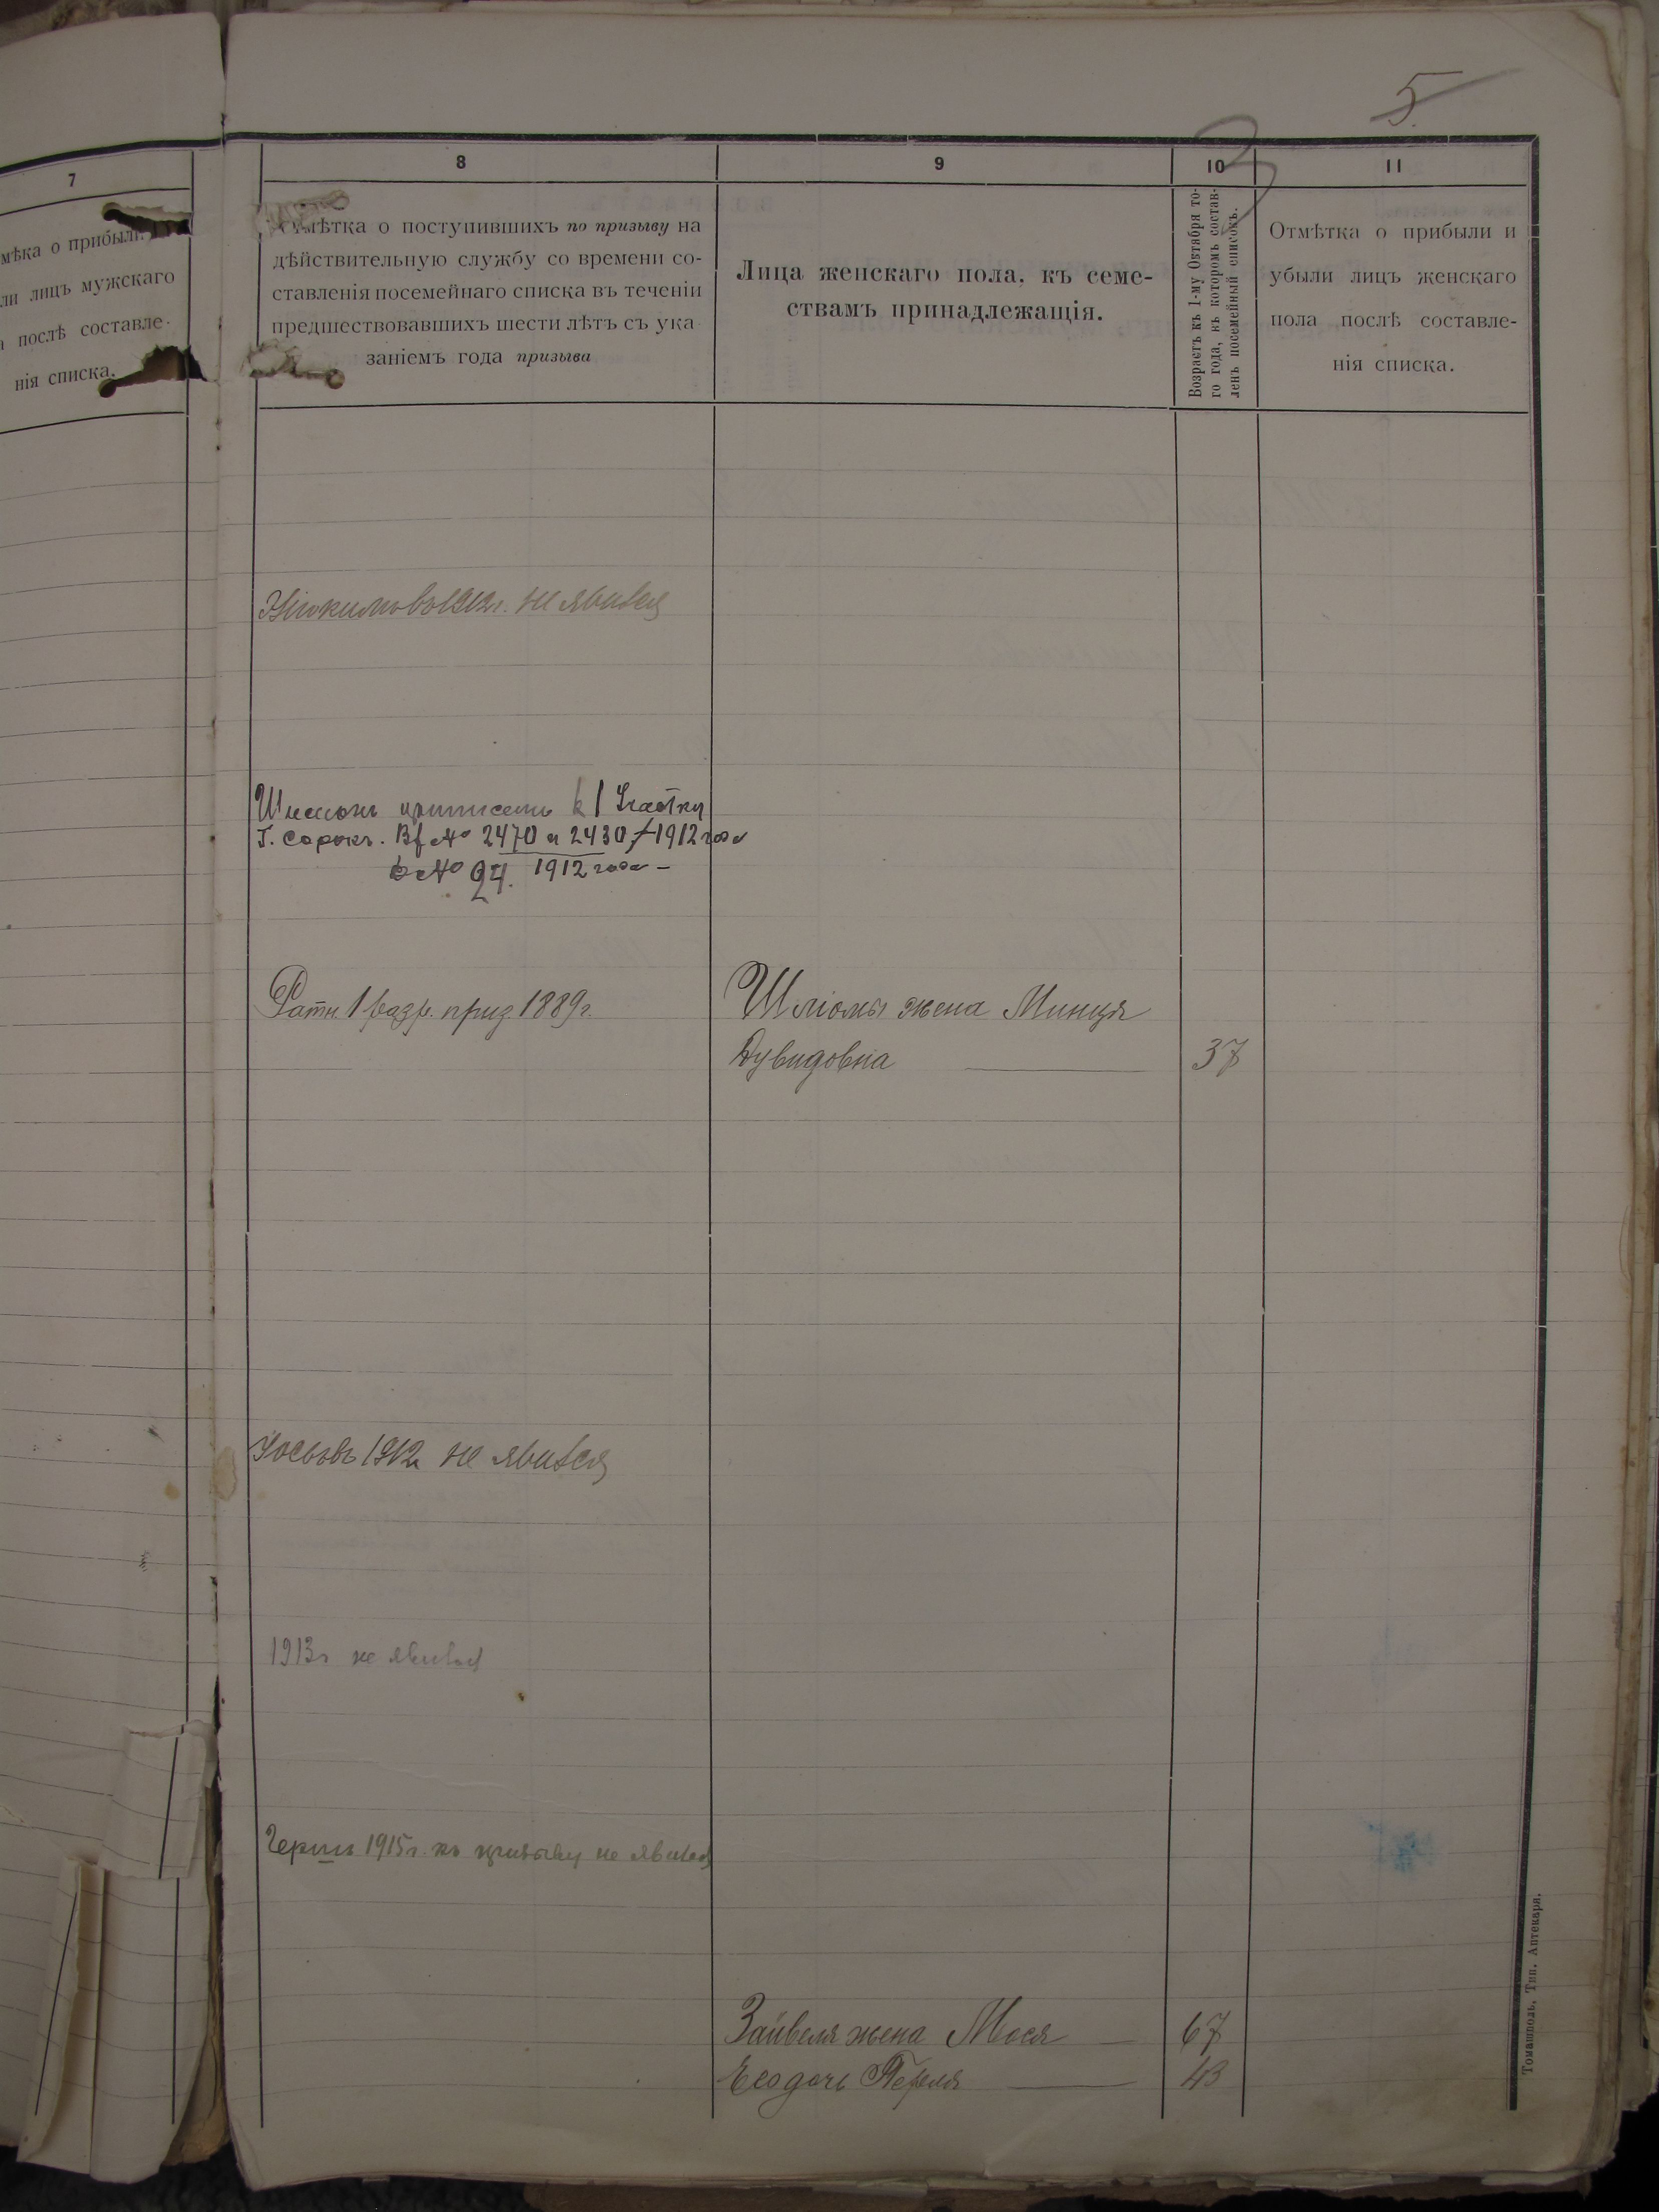 5.
3
7
мѣка о прибыли
ли лицъ мужскаго
послѣ составле-
нія списка.
8
Отмѣтка о поступившихъ по призыву на
дѣйствительную службу со времени со-
ставленія посемейнаго списка въ теченіи
предшествовавшихъ шести лѣтъ съ ука
заніемъ года призыва
9
Лица женскаго пола, къ семе-
ствамъ принадлежащія.
10
Возрастъ къ 1-му Октября то-
го года, къ которомъ состав-
ленъ посемейный списокъ.
11
Отмѣтка о прибыли и
убыли лицъ женскаго
пола послѣ составле-
нія списка.
1912г. не явился
приписанъ к 1 Участку
Г. Сорокъ. № 2470 и 2430 1912 года
№ 24. 1912 года –
Ратн. 1 разр. приз. 1889г.
Шліомы жена Минця
Дувидовна 37
1912 не явился
1913г не явился
Гершъ 1915г. къ призыву не явился
Зайвеля жена Мося 67
Его дочь Перля 43
Томашполь, Тип. Аптекаря.